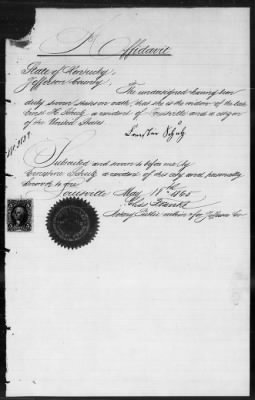 Affidavit
State of Kentucky
Jefferson County
The undersigned having been
duly sworn states on oath, that she is the widow of the late
a resident of Louisville and a citizen
of the United States
Schütz
Subscribed and sworn to before me by
Ernestine Schutz a resident of this city and personally
known to me
Louisville May 18th 1865
Notary Public within & for Jefferson Co